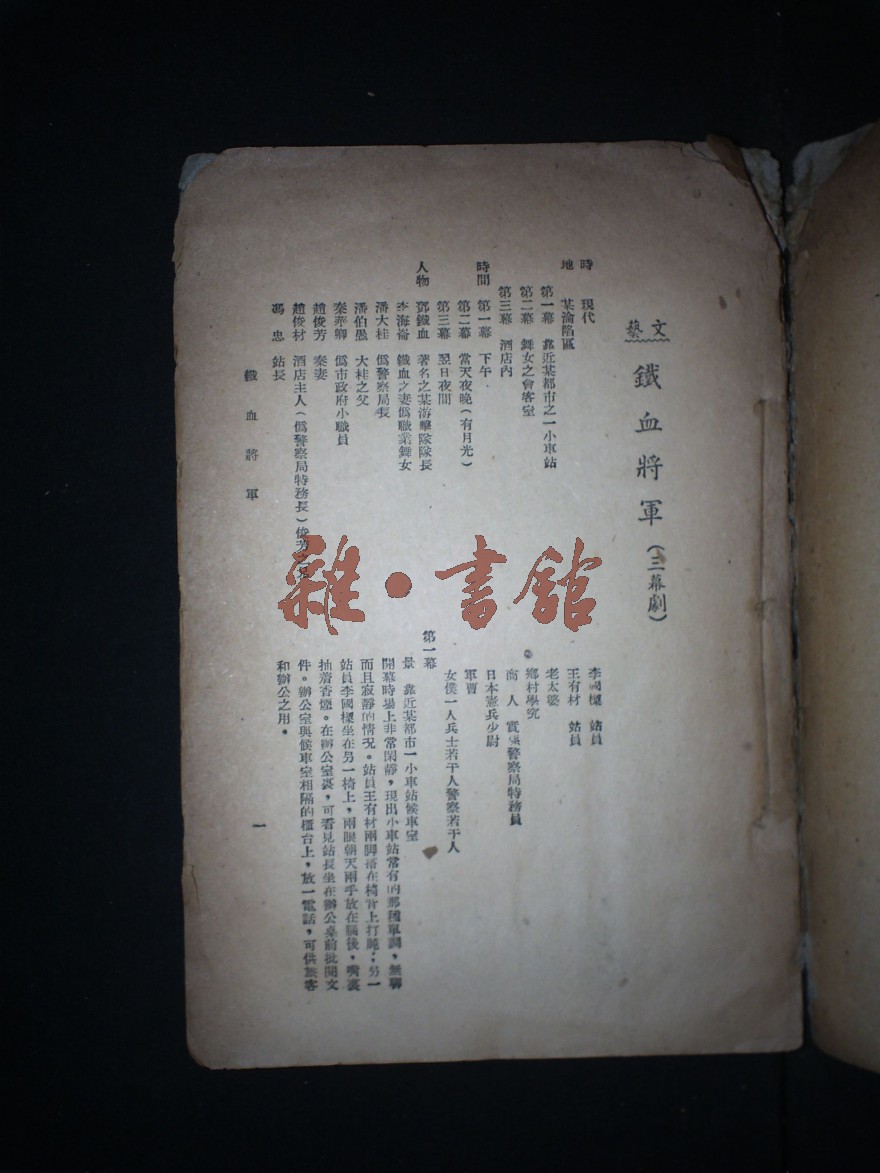 文藝
鐵血將軍（三幕劇）
時 現代
地 某淪陷區
第一幕 靠近某都市之一小車站
第二幕 舞女之會客室
第三幕 酒店內
時間 第一幕 下午
第二幕 當天夜晚（有月光）
第三幕 翌日夜間
人物 鄧鐵血 著名之某游擊隊隊長
李海崙 鐵血之妻僞職業舞女
潘大桂 僞警察局長
潘伯愚 大桂之父
秦華卿 僞市政府小職員
趙俊芳 秦妻
趙俊材 酒店主人（僞警察局特務長）俊芳之兄
馮忠 站長
李國樑 站員
王有材 站員
老太婆
鄉村學究
商人 實係警察局特務員
日本憲兵少尉
軍曹
女僕一人兵士若干人警察若干人
第一幕
景 靠近某都市一小車站候車室
開幕時場上非常閑靜，現出小車站常有的那種單調，無聊
而且寂靜的情况。站員王有材兩脚搭在椅背上打盹，另一
站員李國樑坐在另一椅上，兩眼朝天兩手放在腦後，嘴裏
抽着香煙。在辦公室裏，可看見站長坐在辦公桌前批閱文
件。辦公室與候車室相隔的櫃台上，放一電話，可供旅客
和辦公之用。
鐵血將軍
一
雜·書館